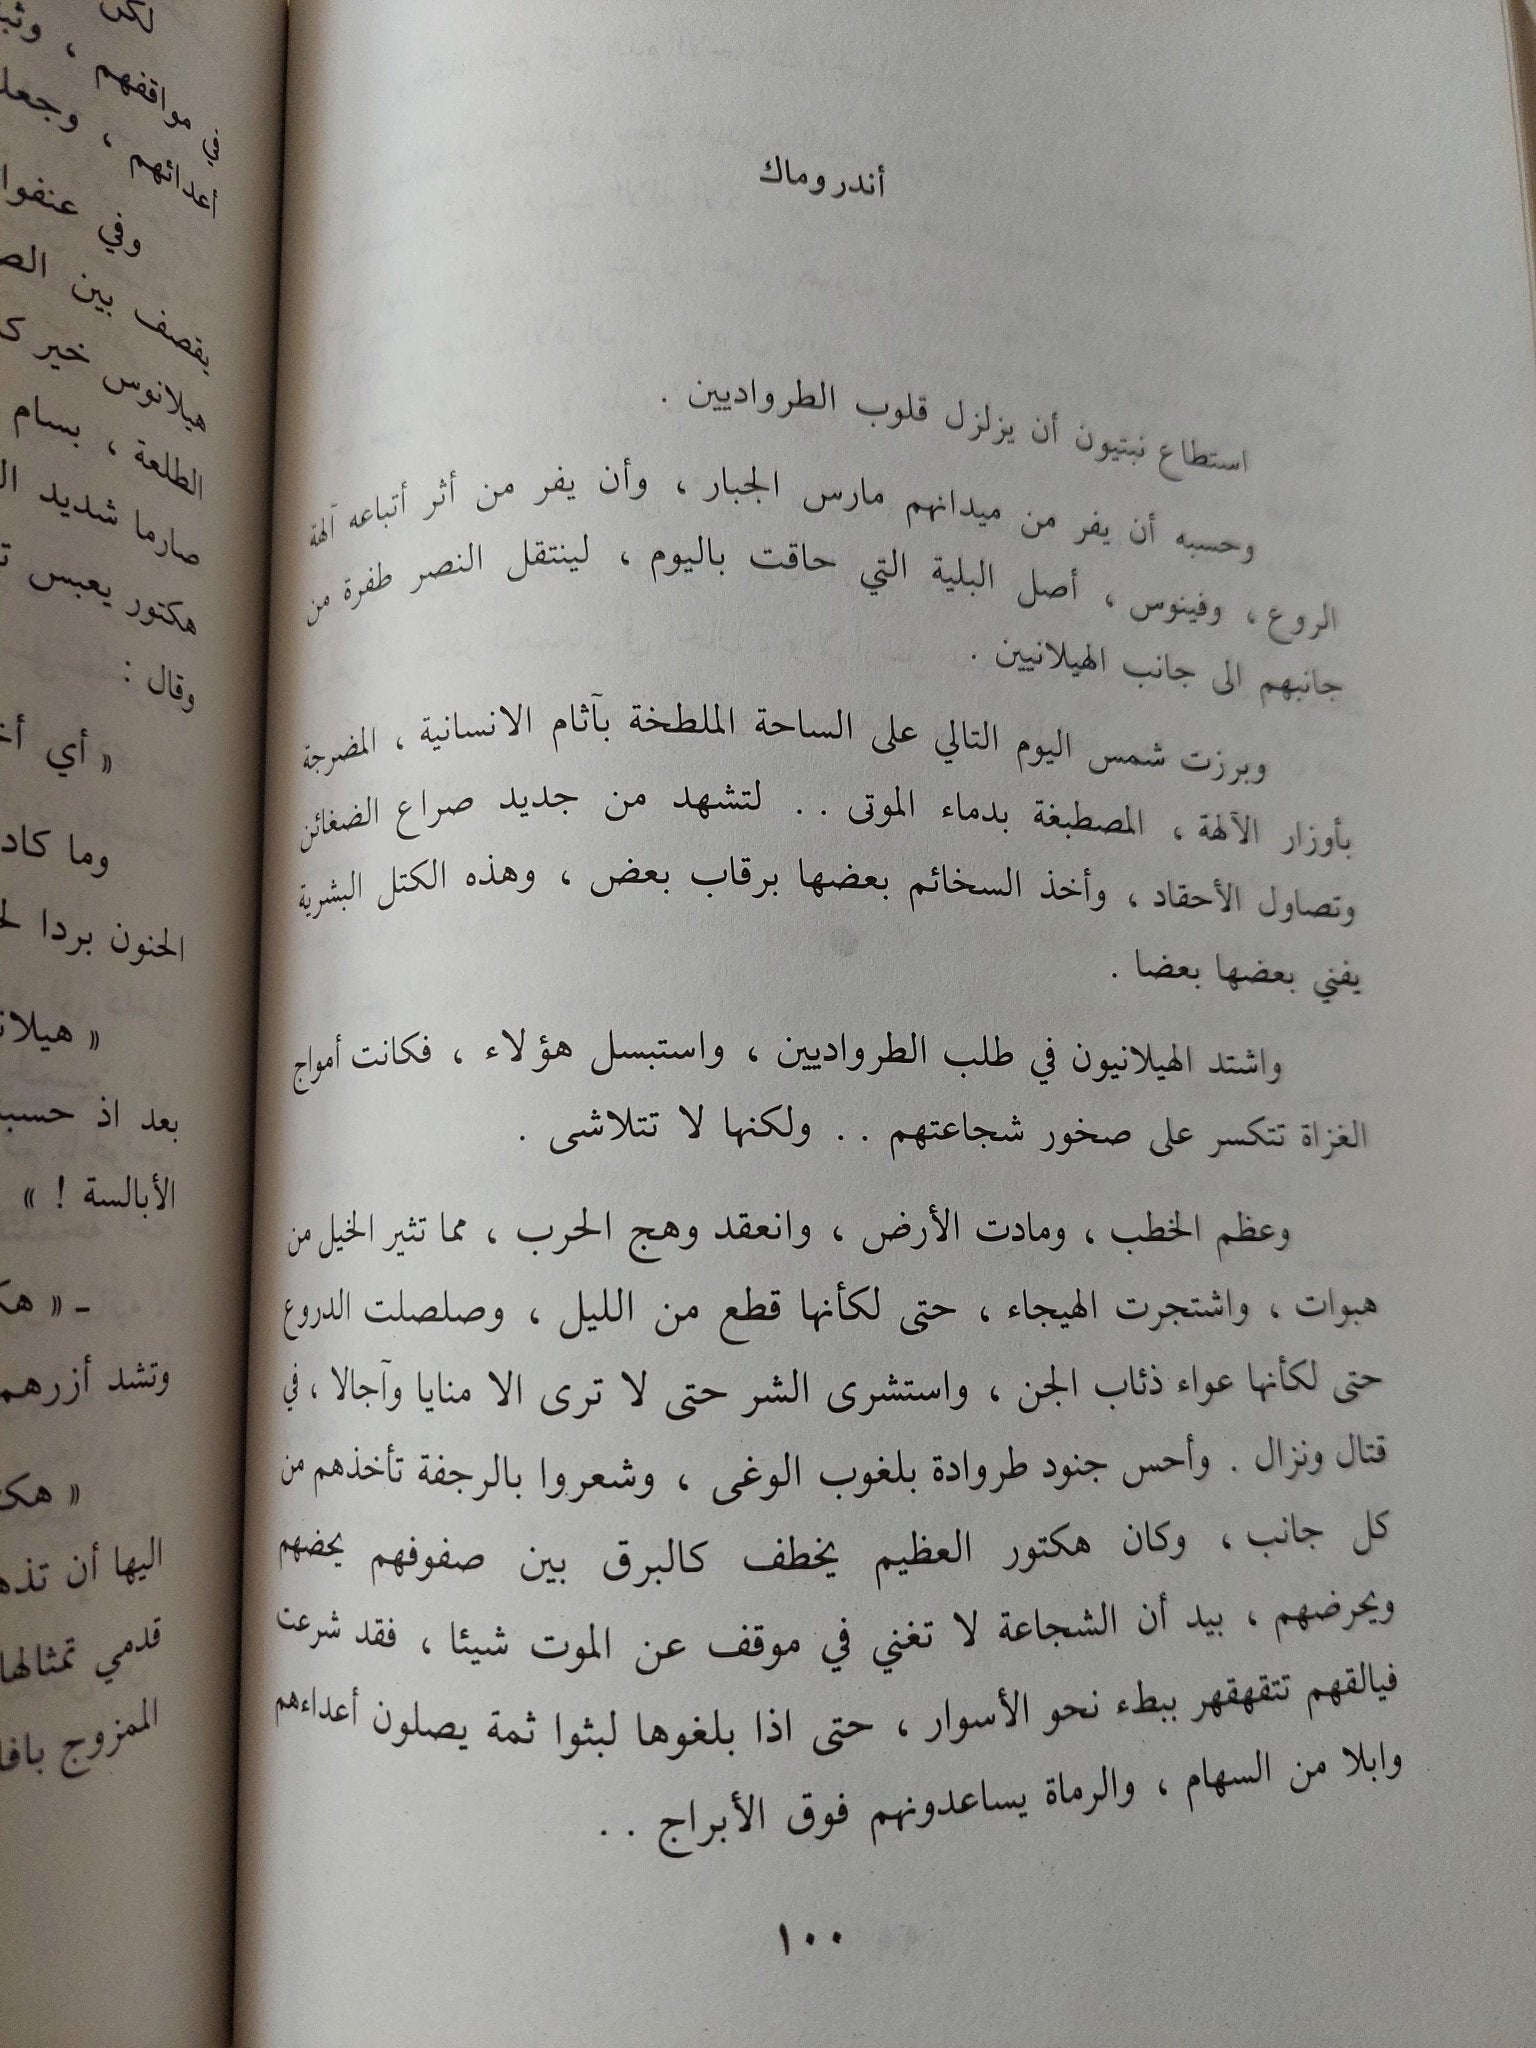 أندروماك
استطاع نبتيون أن يزلزل قلوب الطرواديين .
وحسبه أن يفر من ميدانهم مارس الجبار ، وأن يفر من أثر أتباعه آلهة
الروع ، وفينوس ، أصل البلية التي حاقت باليوم ، لينتقل النصر طفرة من
جانبهم الى جانب الهيلانيين .
وبرزت شمس اليوم التالي على الساحة الملطخة بآثام الانسانية ، المضرجة
بأوزار الآلهة ، المصطبغة بدماء الموتى . . لتشهد من جديد صراع الضغائن
وتصاول الأحقاد ، وأخذ السخائم بعضها برقاب بعض ، وهذه الكتل البشرية
يفني بعضها بعضا .
واشتد الهيلانيون في طلب الطرواديين ، واستبسل هؤلاء ، فكانت أمواج
الغزاة تتكسر على صخور شجاعتهم . . ولكنها لا تتلاشى .
وعظم الخطب ، ومادت الأرض ، وانعقد وهج الحرب ، مما تثير الخيل من
هبوات ، واشتجرت الهيجاء ، حتى لكأنها قطع من الليل ، وصلصلت الدروع
حتى لكأنها عواء ذئاب الجن ، واستشرى الشر حتى لا ترى الا منايا وآجالا ، في
قتال ونزال . وأحس جنود طروادة بلغوب الوغى ، وشعروا بالرجفة تأخذهم من
كل جانب ، وكان هكتور العظيم يخطف كالبرق بين صفوفهم يحضهم
ويحرضهم ، بيد أن الشجاعة لا تغني في موقف عن الموت شيئا ، فقد شرعت
فيالقهم تتقهقهر ببطء نحو الأسوار ، حتى اذا بلغوها لبثوا ثمة يصلون أعداءهم
وابلا من السهام ، والرماة يساعدونهم فوق الأبراج . .
١٠٠
لكن
في مواقفهم ،
أعدائهم ،
وفي
يقصف بين
هيلانوس خير
الطلعة ، بسام
صارما شديد
هكتور يعبس
وقال :
« أي
وما كاد
الحنون بردا
«
بعد اذ
الأبالسة ! »
- «
وتشد أزرهم
«
اليها أن
قدمي تمثالها
الممزوج